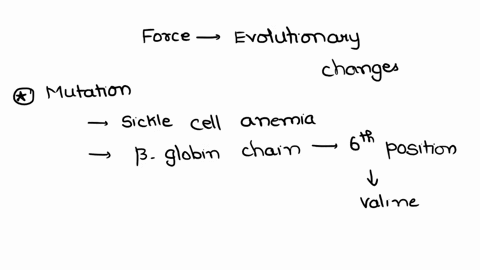 Force → Evolutionary
changes
* Mutation
→ Sickle cell anemia
→ β-globin chain → 6th position
↓
valine